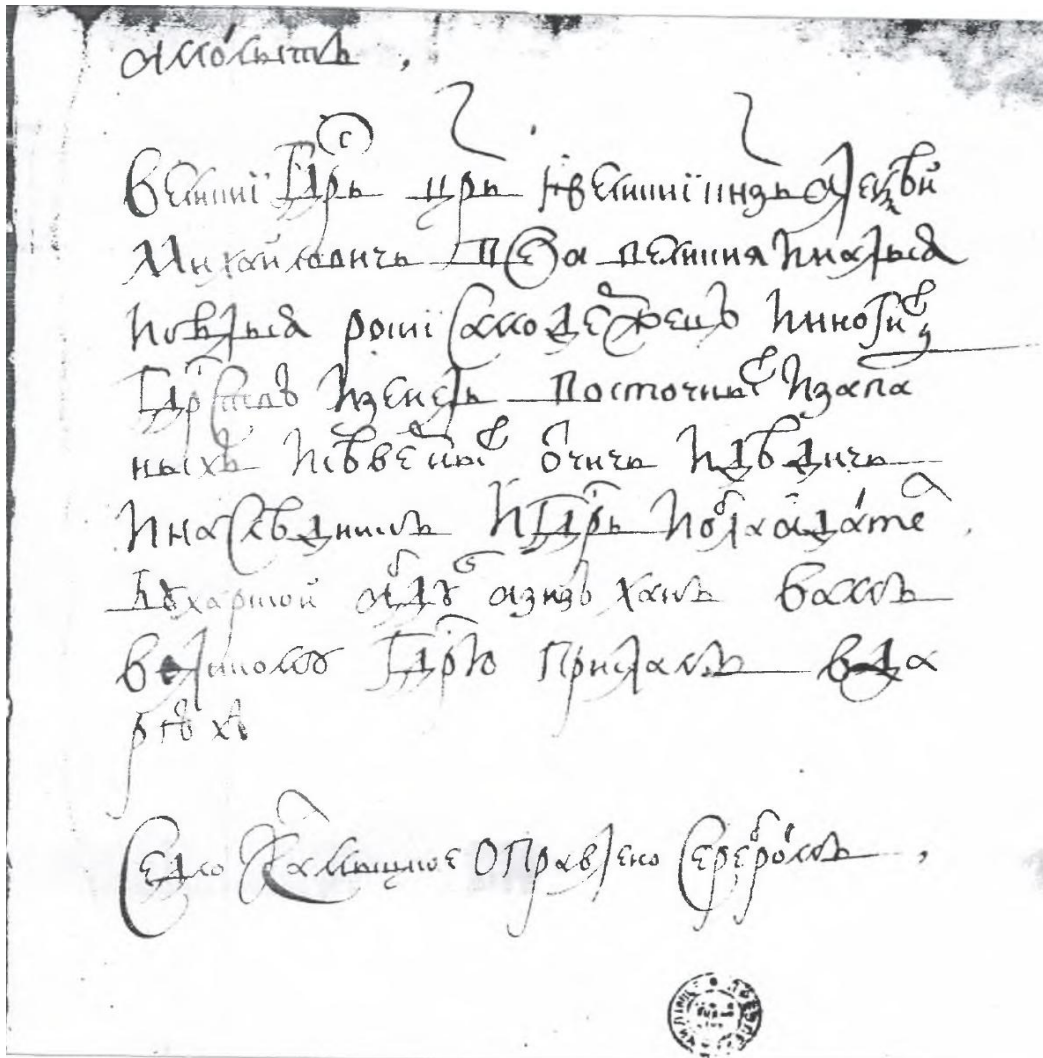 а молытъ ,
Великиї Гдрь црь и великиї кнзь Алеѯѣй
Михайловичь всеа великия и малыя
и бѣлыя росиї самодержецъ и многих
Гдрствъ и земель восточных и запа
ныхъ и сѣверных отчичь и дѣдичь
и наслѣдникъ и Гдрь и обладатель
Бухарской абдул азизъ ханъ вамъ
великому Гдрю прислалъ в да
рѣхъ
Седло камышное оправлено серебромъ ,